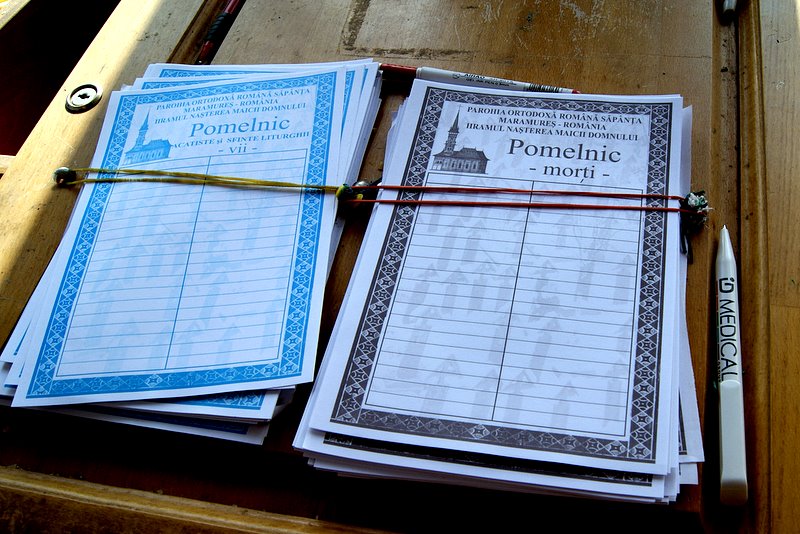 PAROHIA ORTODOXĂ ROMÂNĂ SĂPÂNŢA
MARAMUREŞ - ROMÂNIA
HRAMUL NAŞTEREA MAICII DOMNULUI
Pomelnic
ACATISTE şi SFINTE LITURGHII
- vii -
PAROHIA ORTODOXĂ ROMÂNĂ SĂPÂNŢA
MARAMUREŞ - ROMÂNIA
HRAMUL NAŞTEREA MAICII DOMNULUI
Pomelnic
- morţi -
MEDICAL